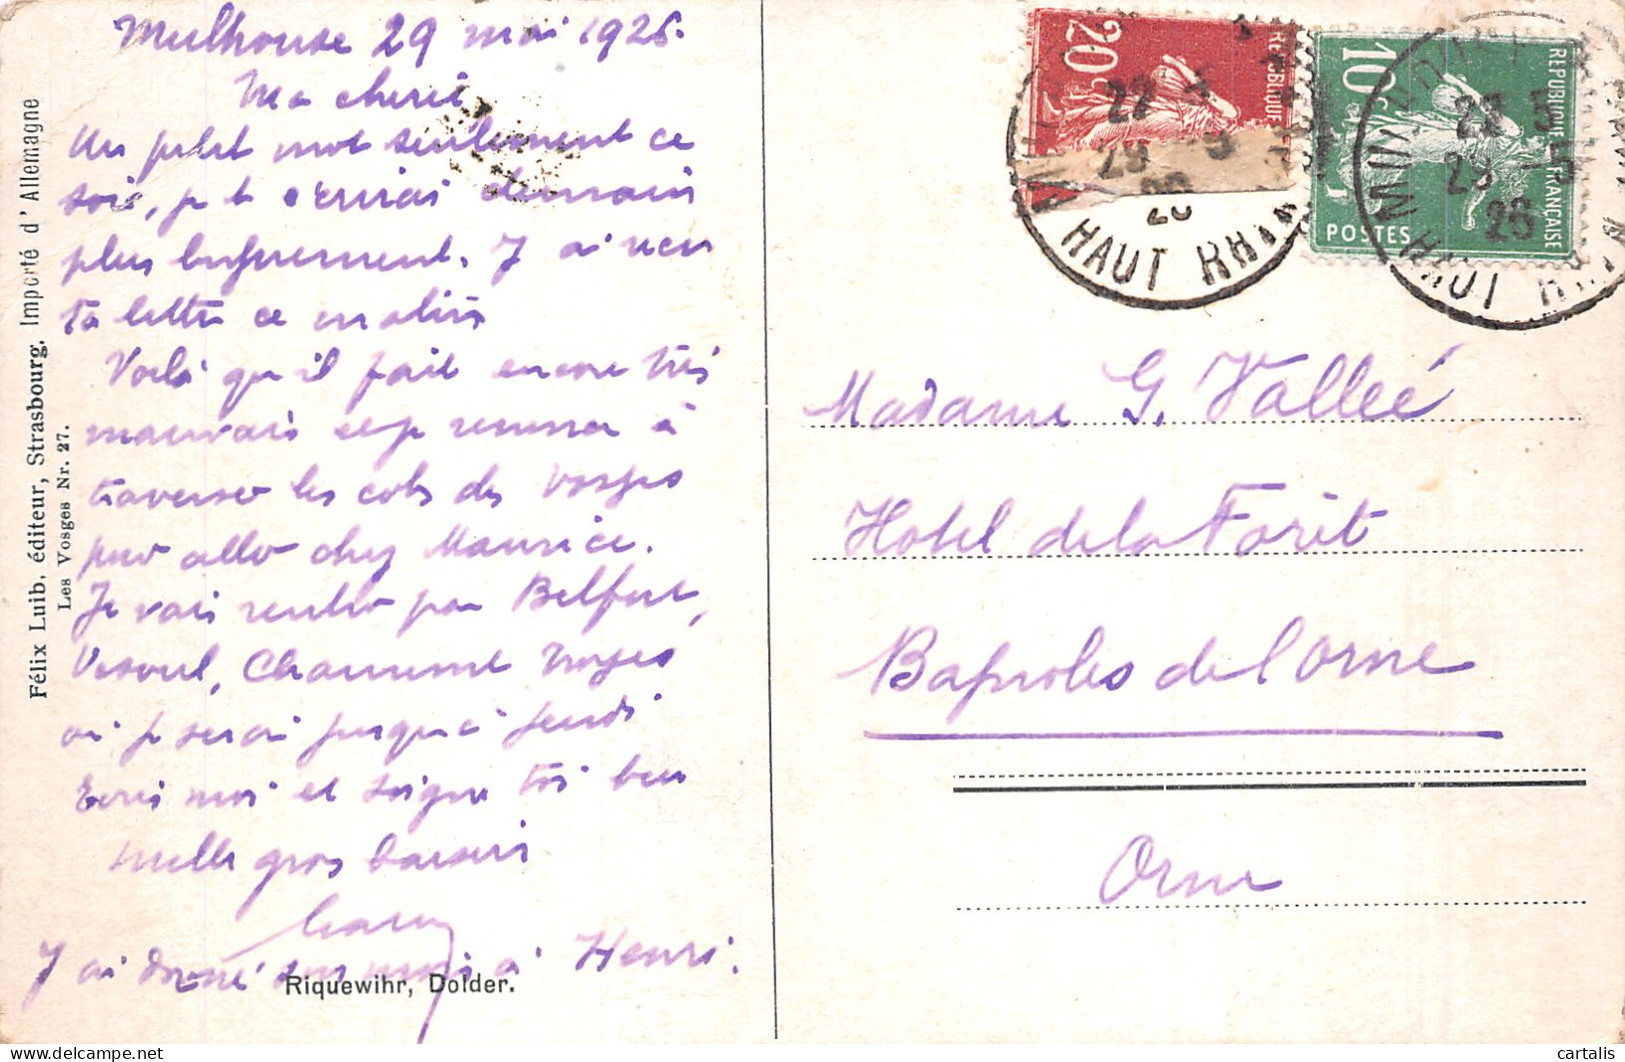 Mulhouse 29 mai 1926.
Ma cherie
Un petit mot seulement ce
soir, je t ecrirai demain
plus longuement. J ai recu
ta lettre ce matin
Voilà qu il fait encore très
mauvais et je renonce à
traverser les cols des Vosges
pour aller chez Maurice.
Je vais rentrer par Belfort,
Vesoul, Chaumont Troyes
où je serai jusqu à jeudi
Ecris moi et soigne toi bien
mille gros baisers
J ai donné son mois à Henri.
Riquewihr, Dolder.
Félix Luib, éditeur, Strasbourg. Importé d'Allemagne
Les Vosges Nr. 27.
20c
REPUBLIQUE
22 5
29 5
26
HAUT RHIN
10c
REPUBLIQUE FRANÇAISE
POSTES
22 5
29 5
26
HAUT RHIN
Madame G. Valleé
Hotel de la Forêt
Bagnoles de l Orne
Orne
cartalis